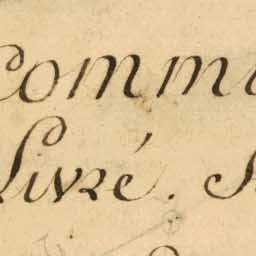 Comm
Livré. S